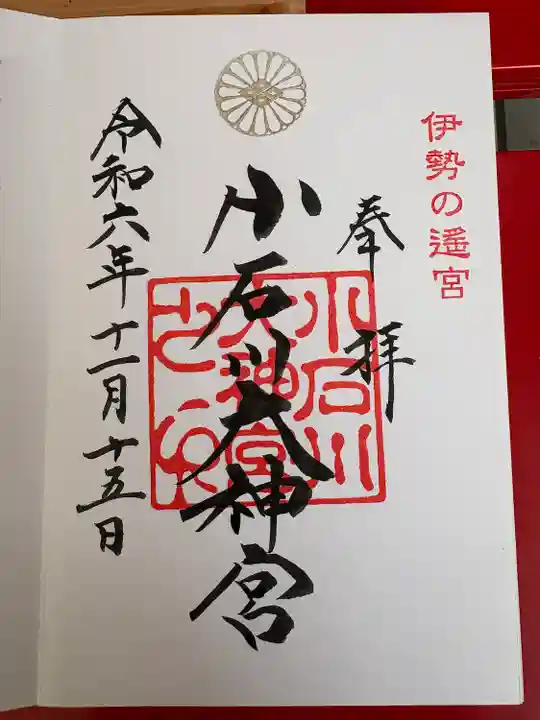 伊勢の遥宮
奉拝
小石川大神宮
小石川
大神宮
之印
令和六年十一月十五日